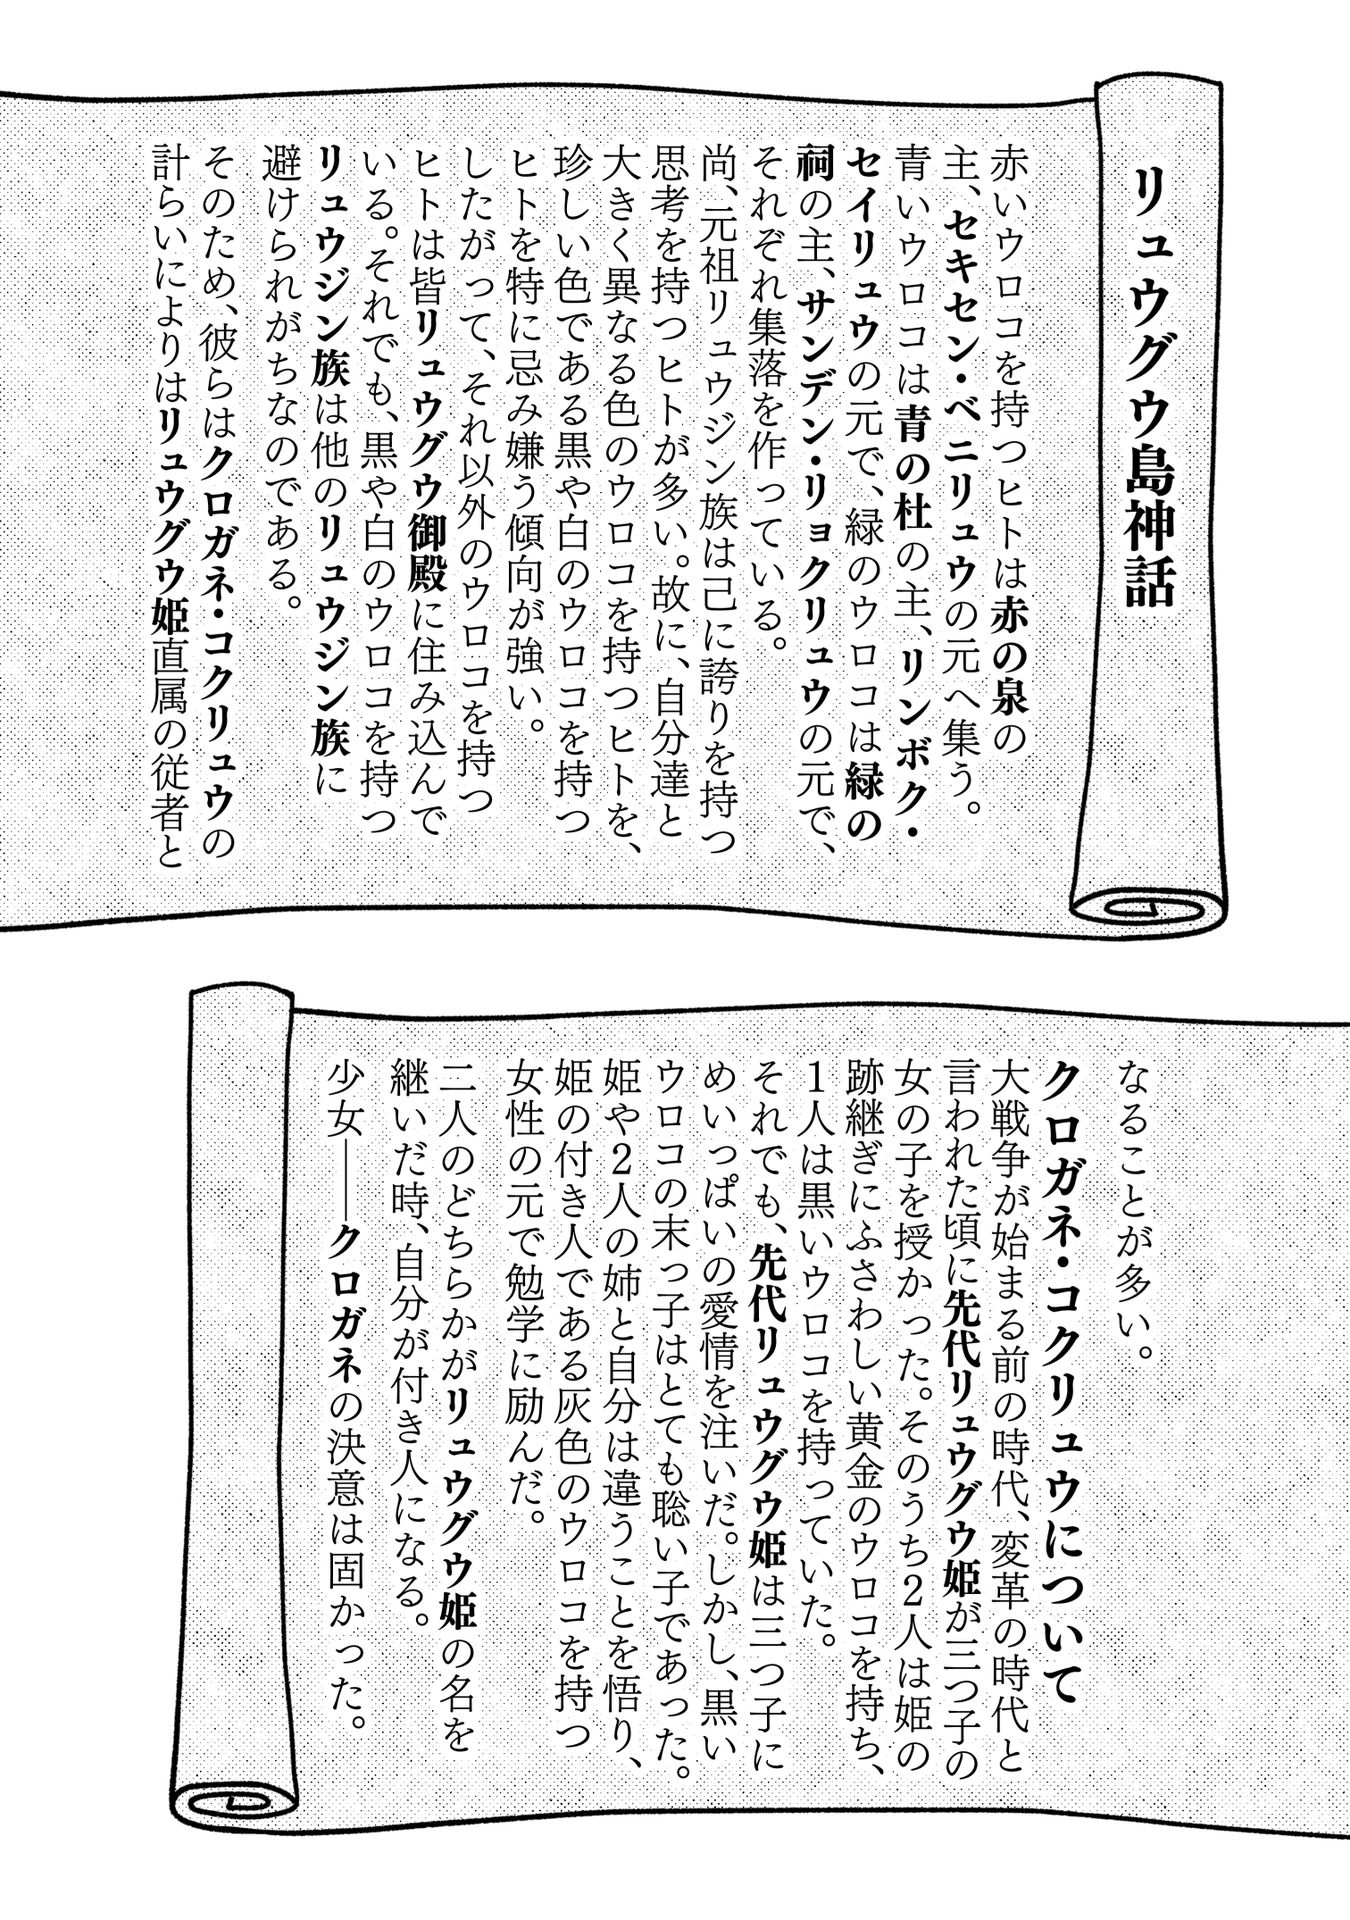 リュウグウ島神話
赤いウロコを持つヒトは赤の泉の
主、セキセン・ベニリュウの元へ集う。
青いウロコは青の杜の主、リンボク・
セイリュウの元で、緑のウロコは緑の
祠の主、サンデン・リョクリュウの元で、
それぞれ集落を作っている。
尚、元祖リュウジン族は己に誇りを持つ
思考を持つヒトが多い。故に、自分達と
大きく異なる色のウロコを持つヒトを、
珍しい色である黒や白のウロコを持つ
ヒトを特に忌み嫌う傾向が強い。
したがって、それ以外のウロコを持つ
ヒトは皆リュウグウ御殿に住み込んで
いる。それでも、黒や白のウロコを持つ
リュウジン族は他のリュウジン族に
避けられがちなのである。
そのため、彼らはクロガネ・コクリュウの
計らいによりはリュウグウ姫直属の従者と
なることが多い。
クロガネ・コクリュウについて
大戦争が始まる前の時代、変革の時代と
言われた頃に先代リュウグウ姫が三つ子の
女の子を授かった。そのうち2人は姫の
跡継ぎにふさわしい黄金のウロコを持ち、
1人は黒いウロコを持っていた。
それでも、先代リュウグウ姫は三つ子に
めいっぱいの愛情を注いだ。しかし、黒い
ウロコの末っ子はとても聡い子であった。
姫や2人の姉と自分は違うことを悟り、
姫の付き人である灰色のウロコを持つ
女性の元で勉学に励んだ。
二人のどちらかがリュウグウ姫の名を
継いだ時、自分が付き人になる。
少女――クロガネの決意は固かった。